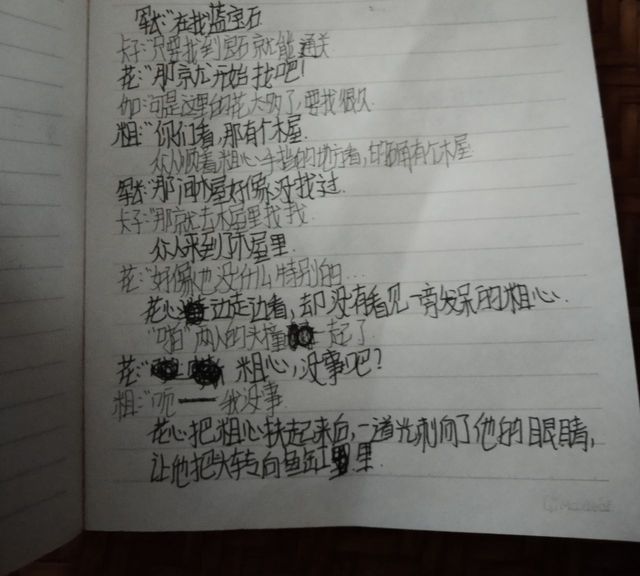 军长:"在找蓝宝石
卡子:"只要找到宝石就能通关
花:"那就开始找吧!
加:可是这里的花太多了,要找很久.
粗:"你们看,那有个木屋.
众人顺着粗心手指的地方看,的确有个木屋
军长:"那间木屋好像没找过.
卡子:"那就去木屋里找找.
众人来到了木屋里.
花:"好像也没什么特别的...
花心边走边看,却没有看见一旁发呆的粗心.
"啪"两人的头撞一起了.
花:"粗心,没事吧?
粗:"呃——我没事.
花心把粗心扶起来后,一道光刺向了他的眼睛,
让他把头转向鱼缸里.